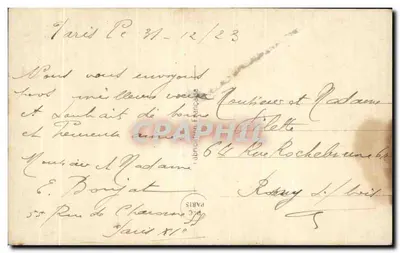 Paris le 31-12/23
Nous vous envoyons
nos meilleurs vœux
et souhait de bonne
et heureuse année
Monsieur et Madame
E. Boujat
55 Rue de Charonne
Paris XIe
Monsieur et Madame
67 Rue Rochebrune
Rosny s/ bois
CPARAMA.COM
PARIS